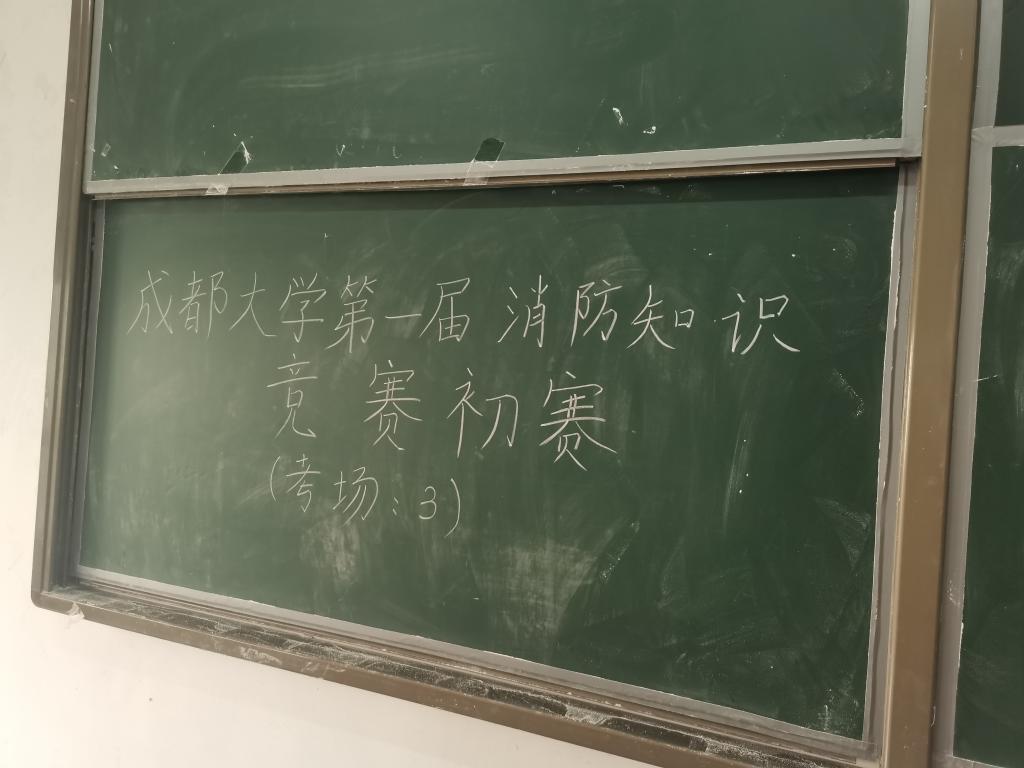 成都大学第一届消防知识
竞赛初赛
(考场:3)